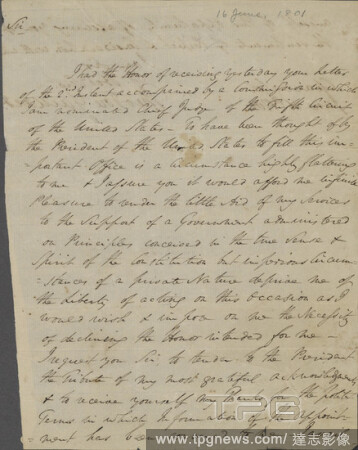 16 June, 1801
Sir
I had the Honor of receiving yesterday your Letter
of the 2d Instant accompanied by a Commission in which
I am nominated Chief Judge of the Fifth Circuit
of the United States - To have been thought of by
the President of the United States to fill this im-
portant Office is a Circumstance highly flattering
to me & I assure you it would afford me infinite
Pleasure to render the little Aid of my Services
to the Support of a Government administered
on Principles conceived in the true Sense &
Spirit of the Constitution but imperious Circum
-stances of a private Nature deprive me of
the Liberty of acting on this Occasion as I
would wish & impose on me the Necessity
of declining the Honor intended for me -
I request you Sir to tender to the President
the Tribute of my most grateful acknowledgments
& to receive yourself my Thanks for the polite
Terms in which Information of the Appoint-
ment has been
TPG
www.tpgnews.com / 達志影像